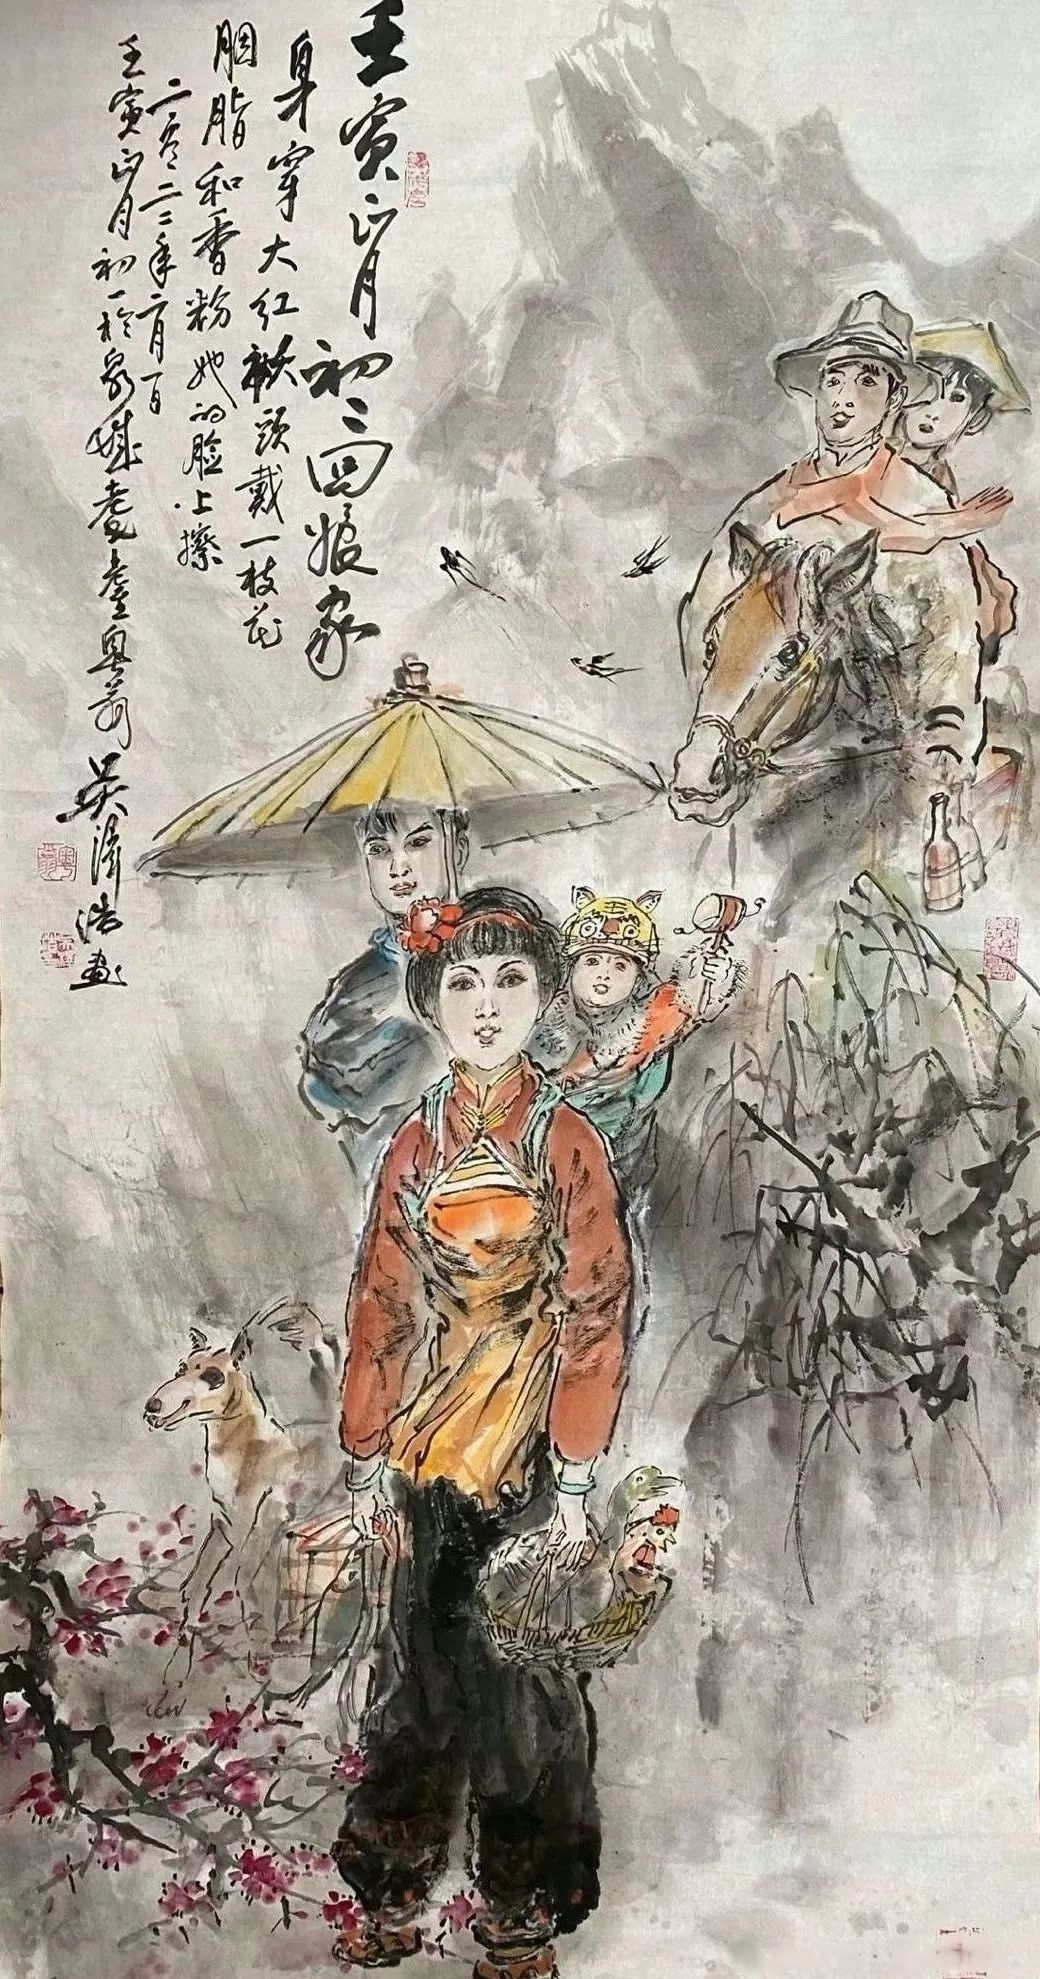 壬寅正月初二回娘家
身穿大红袄头戴一枝花
胭脂和香粉她的脸上擦
二零二二年二月一日
壬寅正月初一于泉城耄耋粤翁
吴泽浩画